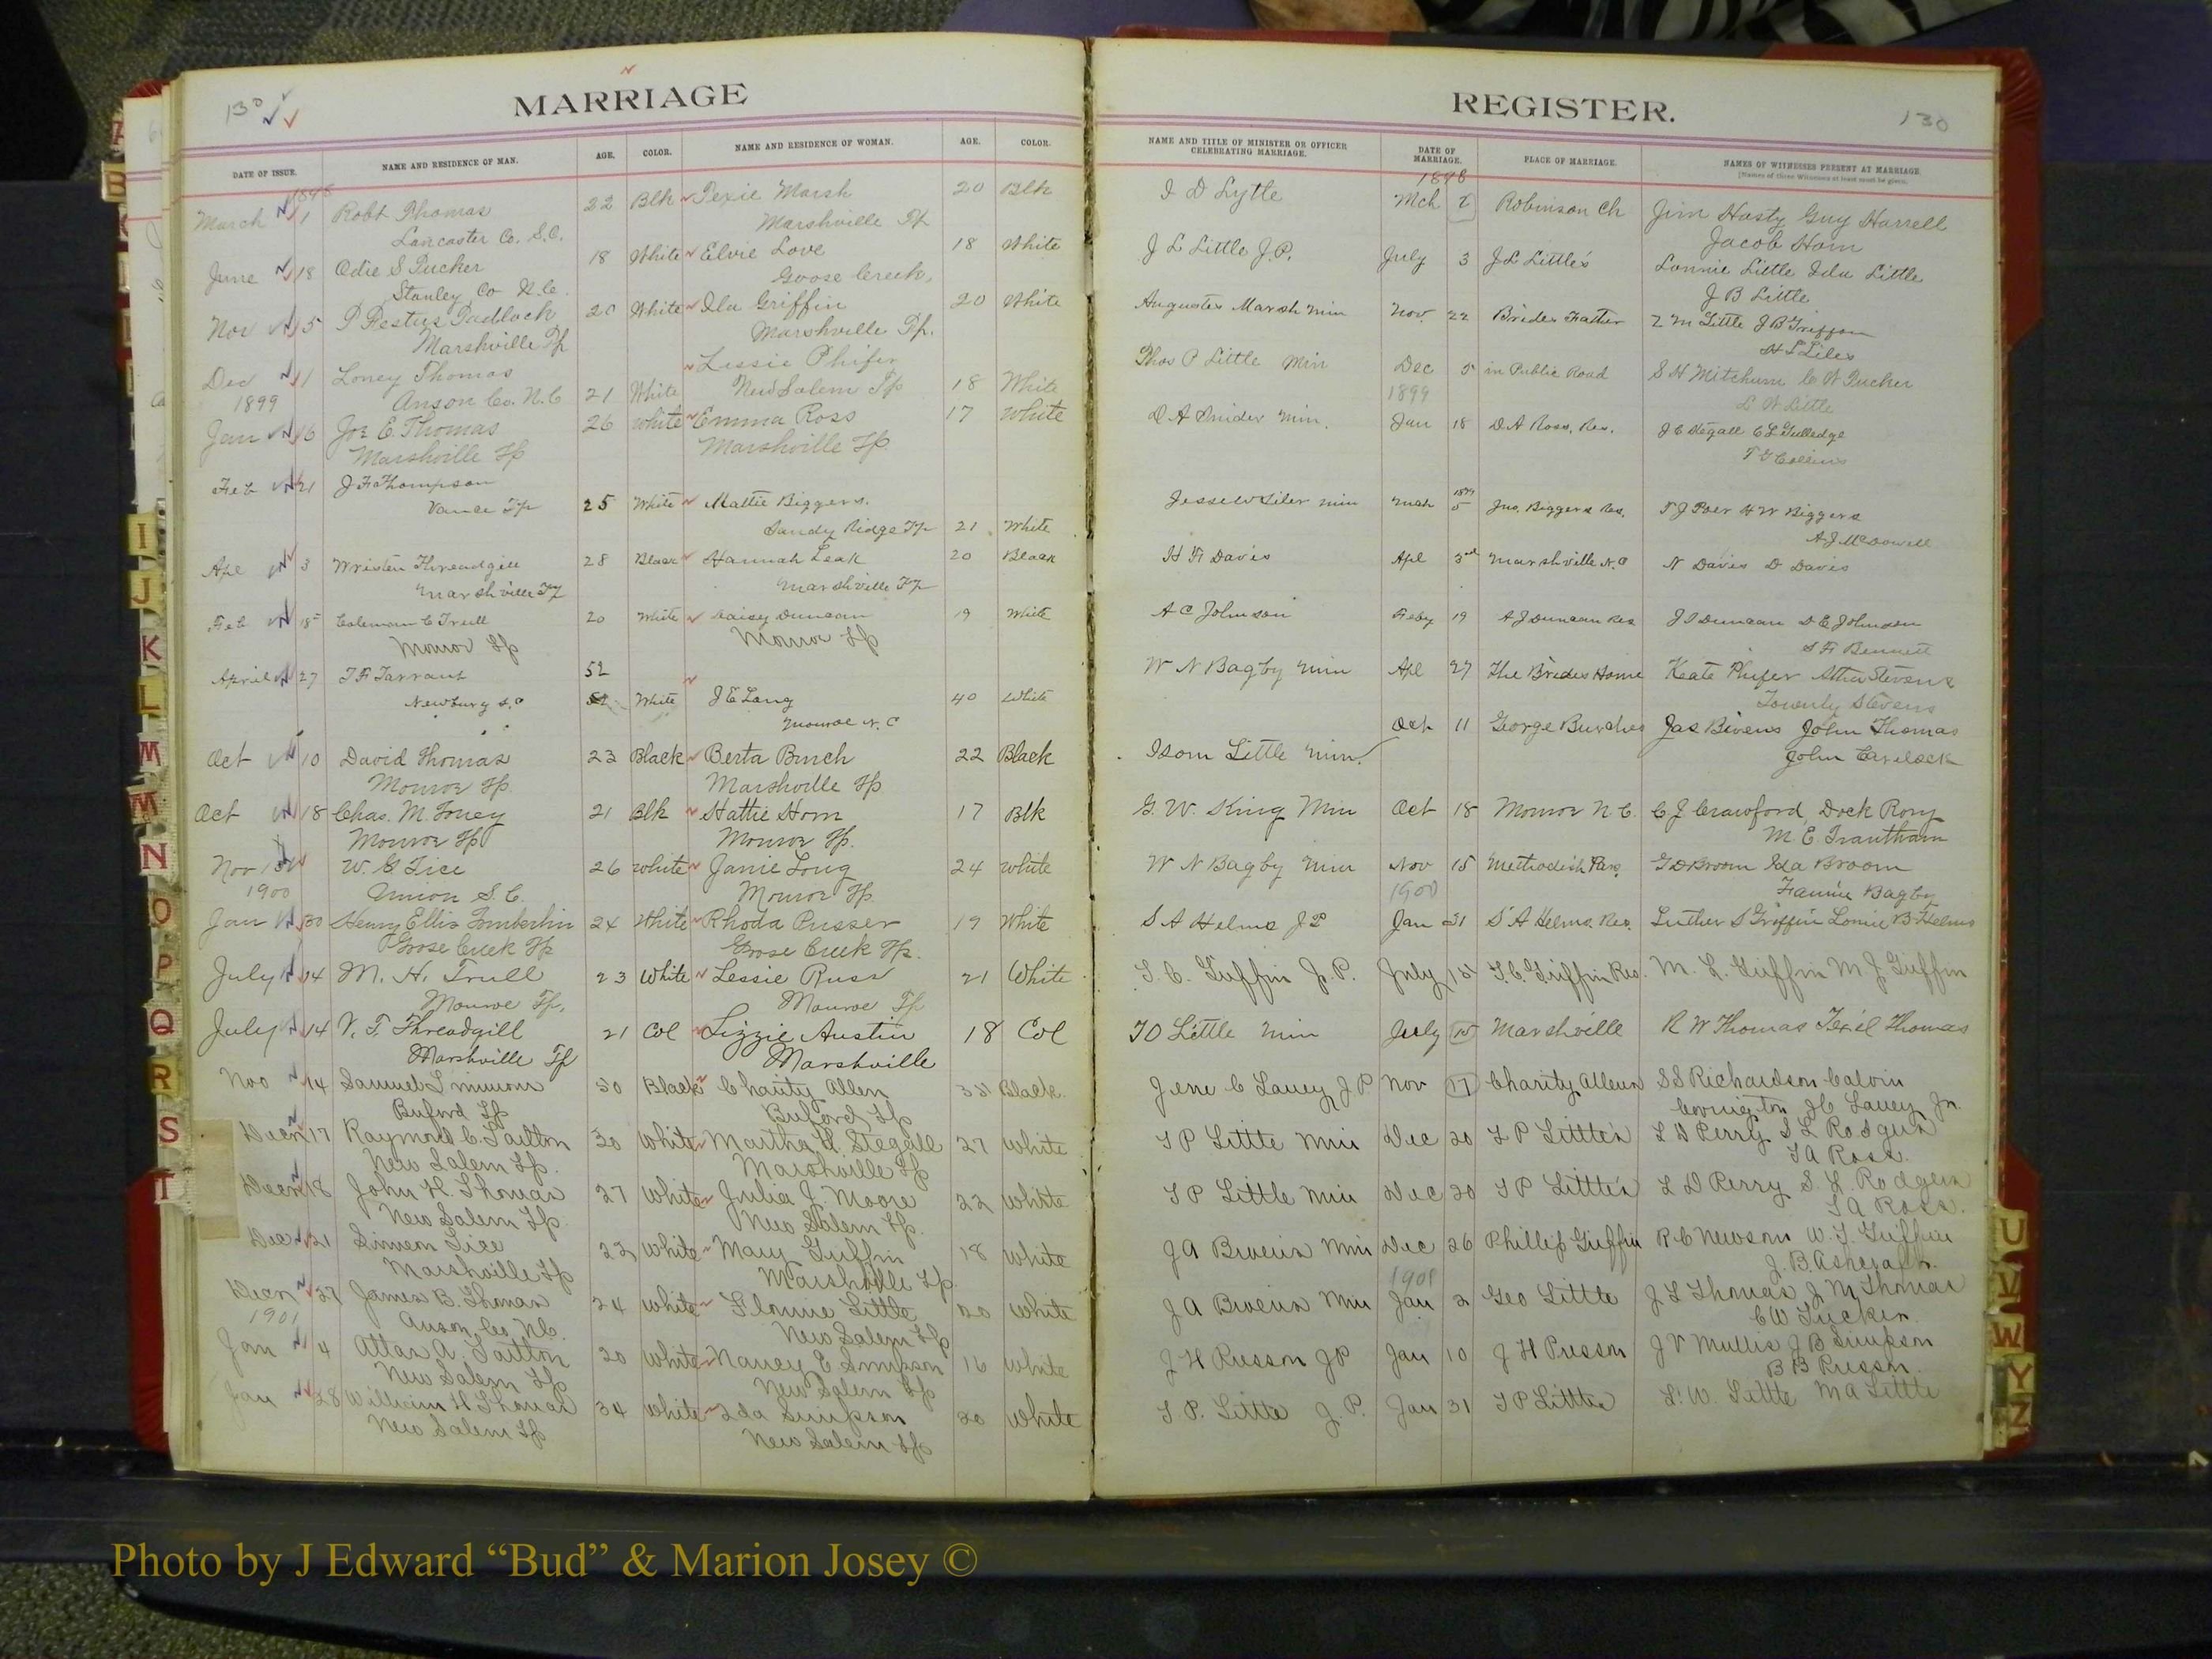 130
MARRIAGE
DATE OF ISSUE.
NAME AND RESIDENCE OF MAN.
AGE.
COLOR.
NAME AND RESIDENCE OF WOMAN.
AGE.
COLOR.
1898
March 1 Robt Thomas 22 Blk Texie Marsh 20 Blk
Lancaster Co. S.C. Marshville Tp
June 18 Odie S Tucker 18 White Elvie Love 18 White
Stanley Co N.C. Goose Creek.
Nov 5 20 White Ila Griffin 20 White
Marshville Tp Marshville Tp.
Dec 1 Loney Thomas Lissie Phifer
1899 Anson Co. N.C 21 White New Salem Tp 18 White
Jan 16 Joe E. Thomas 26 white Emma Ross 17 White
Marshville Tp Marshville Tp.
Feb 21 J F Thompson
Vance Tp 25 White Mattie Biggers.
Sandy Ridge Tp 21 White
Apl 3 Wristen Threadgill 28 Black Hannah Leak 20 Black
Marshville Tp Marshville Tp
Feb 18 Coleman C Trull 20 White Daisey Duncan 19 White
Monroe Tp Monroe Tp
April 27 T F Tarrant 52
Newbury S.C White J E Long 40 White
Monroe N.C
Oct 10 David Thomas 23 Black Berta Burch 22 Black
Monroe Tp. Marshville Tp.
Oct 18 Chas. M. 21 Blk Hattie Horn 17 Blk
Monroe Tp Monroe Tp.
Nov 15 W. G Tice 26 white Janie Long 24 white
1900 Union S.C. Monroe Tp.
Jan 30 Henry Ellis Tomberlin 24 White Rhoda Presser 19 White
Goose Creek Tp Goose Creek Tp.
July 14 M. H. Trull 23 White Lessie Russ 21 White
Monroe Tp. Monroe Tp
July 14 V. T. Threadgill 21 Col Lizzie Austin 18 Col
Marshville Tp Marshville
Nov 14 Samuel 50 Black Charity Allen 35 Black
Buford Tp Buford Tp
Decr 17 Raymond C. Tarlton 30 White Martha H. Stegall 27 White
New Salem Tp. Marshville Tp
Decr 18 John H. Thomas 27 White Julia J. Moore 22 White
New Salem Tp. New Salem Tp.
Decr 21 Simeon Tice 22 White Mary Griffin 18 White
Marshville Tp Marshville Tp.
Decr 27 James B. Thomas 24 White Flonnie Little 20 White
1901 Anson Co. N.C. New Salem Tp
Jan 4 Atlas A. Tarlton 20 White Nancy E Simpson 16 White
New Salem Tp New Salem Tp
Jan 28 William H Thomas 34 White Ida Simpson 20 White
New Salem Tp New Salem Tp
REGISTER.
130
NAME AND TITLE OF MINISTER OR OFFICER CELEBRATING MARRIAGE.
DATE OF MARRIAGE.
PLACE OF MARRIAGE.
NAMES OF WITNESSES PRESENT AT MARRIAGE.
[Names of three Witnesses at least must be given.
1898
I D Lytle Mch 2 Robinson Ch Jim Hasty Guy Harrell
Jacob Horn
J L Little J.P. July 3 J L Little's Lonnie Little Ida Little
J B Little
Augustus Marsh Min Nov 22 Brides Father Z M Little J B Griffin
H L Liles
Thos P Little Min Dec 5 in Public Road S H Mitchum C W Tucker
1899 L W Little
D A Snider Min. Jan 18 D A Ross. Res. J C Stegall C L Gulledge
T G Collins
Jesse W Siler Min Mch 1899 5 Jno. Biggers Res. T J Poer H W Biggers
A J McDowell
H F Davis Apl 3rd Marshville N.C N Davis D Davis
A C Johnson Feby 19 A J Duncan Res J I Duncan D E Johnson
S F Bennett
W N Bagby Min Apl 27 The Brides Home Kate Phifer Stevens
Stevens
Oct 11 George Burches Jas Bivens John Thomas
Isom Little Min. John
G. W. King Min Oct 18 Monroe N C. C J Crawford, Dock Rory
M. E. Trantham
W N Bagby Min Nov 15 Methodist Par. G D Broom Ida Broom
1900 Fannie Bagby
S A Helms J P Jan 31 S A Helms. Res. Luther S Griffin Lonnie B Helms
T. C. Griffin J. P. July 15 T. C. Griffin Res. M. L. Griffin M. J. Griffin
I O Little Min July 15 Marshville R W Thomas Thomas
Jene C Laney J P Nov 17 Charity Allens S S Richardson Calvin
Covington J C Laney Jr.
T P Little Min Dec 20 T P Little's L D Perry S L Rodgers
T A Ross.
T P Little Min Dec 20 T P Little's L D Perry S. L. Rodgers
T A Ross.
J A Bivens Min Dec 26 Phillip Griffin R C Newsom W. T. Griffin
J. B. Ashcraft.
1901
J A Bivens Min Jan 2 Geo Little J L Thomas J M Thomas
C W Tucker.
J H Presson J P Jan 10 J H Presson J V Mullis J B Simpson
B B Presson.
T. P. Little J. P. Jan 31 T P Little L. W. Little M A Little
A
B
I
J
K
L
M
Mc
N
O
P
Q
R
S
T
U
V
W
Y
Z
Photo by J Edward “Bud” & Marion Josey ©